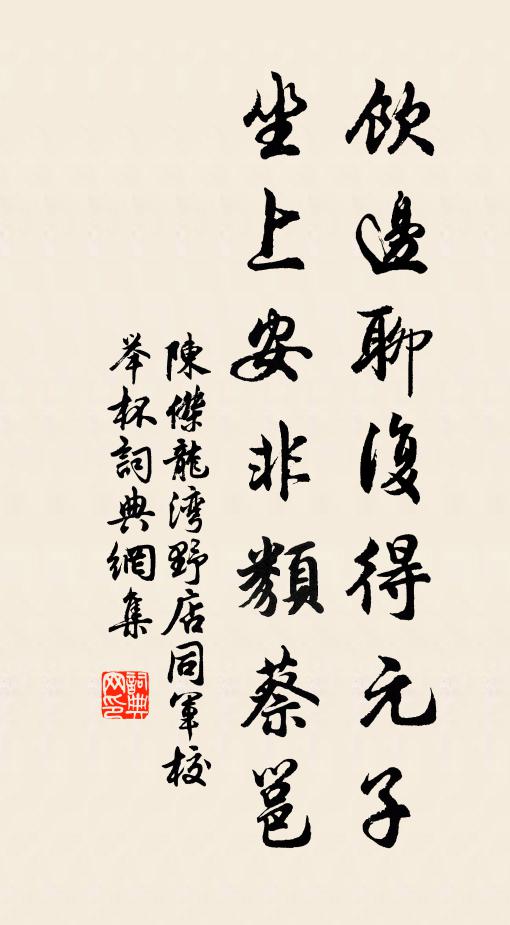 飲邊聊復得元子
坐上安非類蔡邕
陳傑龍湾野店同軍校
举杯詞典網集
詞典网印